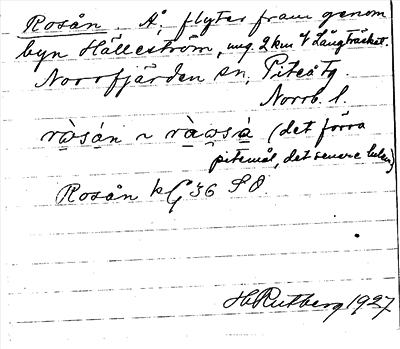 Rosån. Å, flyter fram genom
byn Hälleström, ung. 2 km V Långträsket.
Norrfjärden sn, Piteå tg.
Norrb. l.
ròsán ~ (det förra
pitemål, det senare lulem.)
Rosån kG 36 SO.
H Rutberg 1927